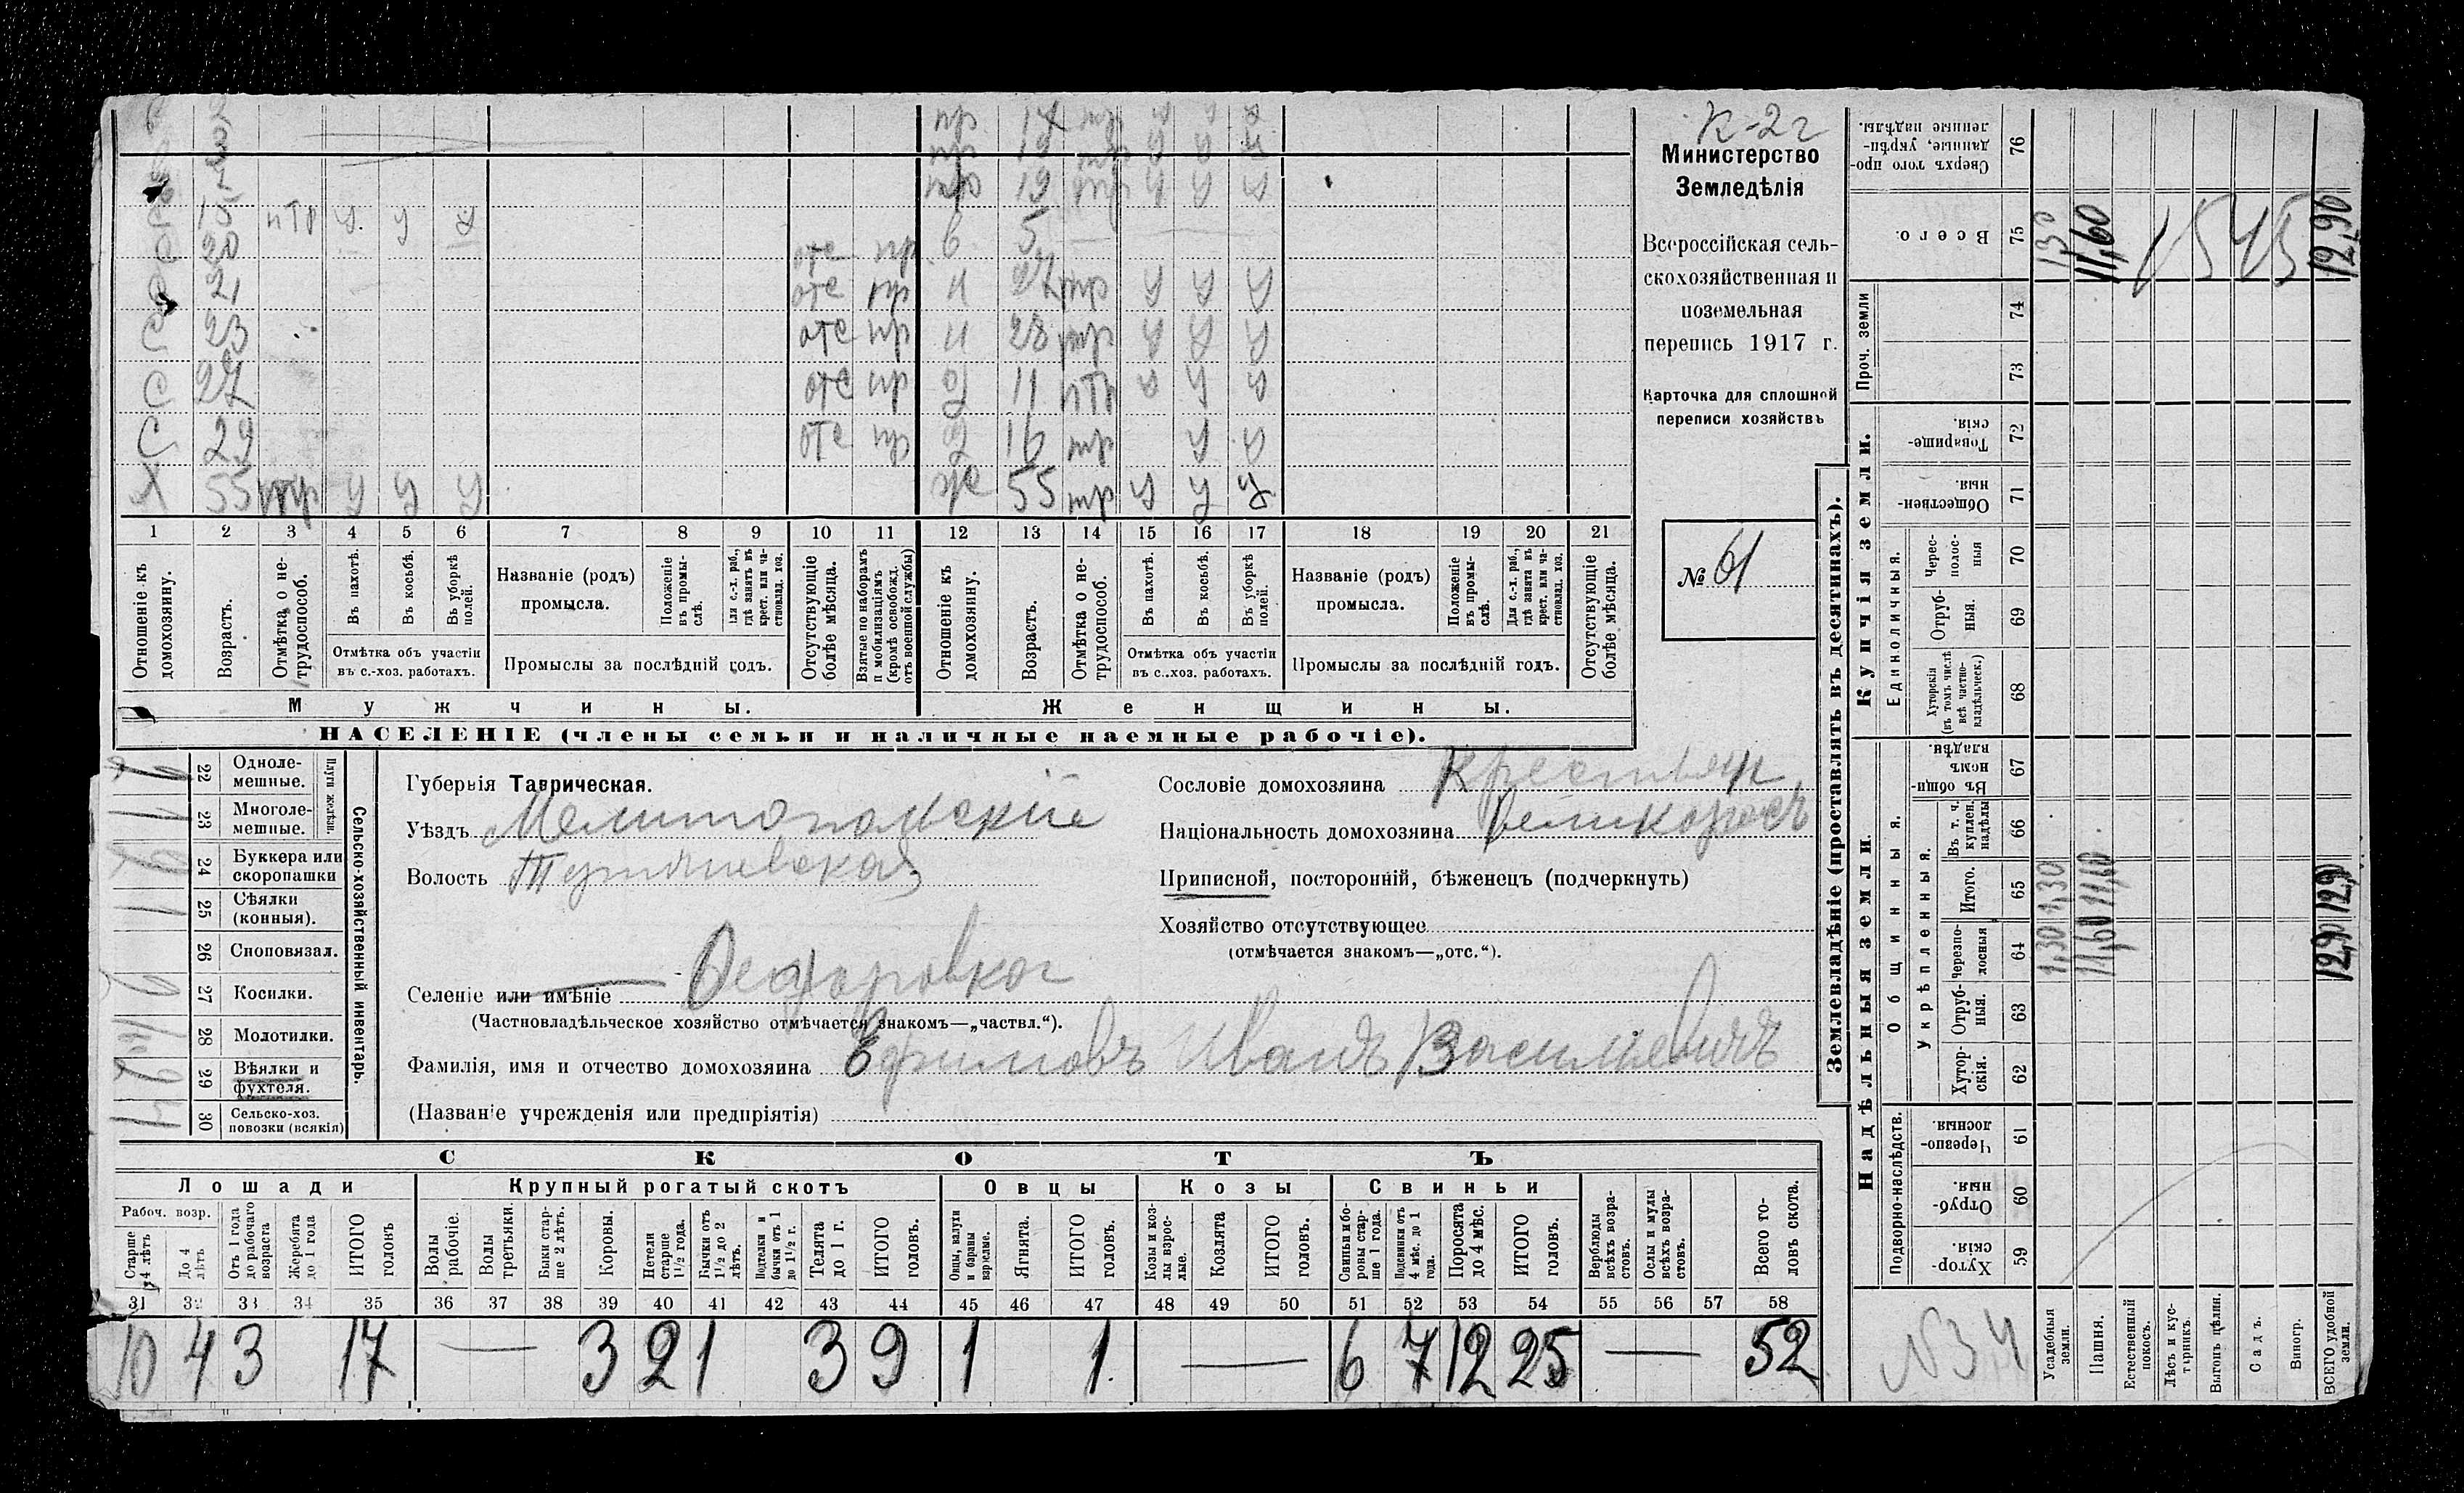 К-2г
Министерство
Земледѣлія
Всероссійская сель-
скохозяйственная и
поземельная
перепись 1917 г.
Карточка для сплошной
переписи хозяйствъ
№ 61
пр 19 тр у у у
в 5
С 15 птр у у у
С 20 отс пр
С 21 отс пр тр у у у
С 23 отс пр н 28 тр у у у
С 27 отс пр д 11 птр у у у
С 29 отс пр д 16 тр у у
Х 55 тр у у у ж 55 тр у у у
1 2 3 4 5 6 7 8 9 10 11 12 13 14 15 16 17 18 19 20 21
Отношеніе къ домохозяину.
Возрастъ.
Отмѣтка о не-трудоспособ.
Въ пахотѣ.
Въ косьбѣ.
Въ уборкѣ полей.
Отмѣтка объ участіи
въ с.-хоз. работахъ.
Названіе (родъ)
промысла.
Положеніе въ промы-слѣ.
Для с.-х. раб., гдѣ занятъ въ крест. или ча-стновлад. хоз.
Промыслы за послѣдній годъ.
Отсутствующіе болѣе мѣсяца.
Взятые по наборамъ и мобилизаціямъ (кромѣ освобожд. отъ военной службы)
Отношеніе къ домохозяину.
Возрастъ.
Отмѣтка о не-трудоспособ.
Въ пахотѣ.
Въ косьбѣ.
Въ уборкѣ полей.
Отмѣтка объ участіи
въ с.-хоз. работахъ.
Названіе (родъ)
промысла.
Положеніе въ промы-слѣ.
Для с.-х. раб., гдѣ занята въ крест. или ча-стновлад. хоз.
Промыслы за послѣдній годъ.
Отсутствующіе болѣе мѣсяца.
Мужчины.
Женщины.
НАСЕЛЕНІЕ (члены семьи и наличные наемные рабочіе).
Сельско-хозяйственный инвентарь.
Плуги желѣзн.
22 Одноле-мешные.
23 Многоле-мешные.
24 Буккера или скоропашки
25 Сѣялки (конныя).
26 Сноповязал.
27 Косилки.
28 Молотилки.
29 Вѣялки и фухтеля.
30 Сельско-хоз. повозки (всякія)
Губернія Таврическая.
Уѣздъ Мелитопольскій
Волость
Селеніе или имѣніе Федоровка
(Частновладѣльческое хозяйство отмѣчается знакомъ—„частвл.“).
Фамилія, имя и отчество домохозяина Ефимовъ Иванъ Васильевичъ
(Названіе учрежденія или предпріятія)
Сословіе домохозяина Крестьян
Національность домохозяина Великороссъ
Приписной, посторонній, бѣженецъ (подчеркнуть)
Хозяйство отсутствующее
(отмѣчается знакомъ—„отс.“).
СКОТЪ
Лошади
Крупный рогатый скотъ
Овцы
Козы
Свиньи
Рабоч. возр.
Старше 4 лѣтъ
До 4 лѣтъ
Отъ 1 года до рабочаго возраста
Жеребята до 1 года
ИТОГО головъ
Волы рабочіе.
Волы третьяки.
Быки стар-ше 2 лѣтъ.
Коровы.
Нетели старше 1½ года.
Бычки отъ 1½ до 2 лѣтъ.
Подтелки и бычки отъ 1 до 1½ г.
Телята до 1 г.
ИТОГО головъ.
Овцы, валухи и бараны взрослые.
Ягнята.
ИТОГО головъ.
Козы и коз-лы взрос-лые.
Козлята
ИТОГО головъ.
Свиньи и бо-ровы стар-ше 1 года.
Подсвинки отъ 4 мѣс. до 1 года.
Поросята до 4 мѣс.
ИТОГО головъ.
Верблюды всѣхъ возра-стовъ.
Ослы и мулы всѣхъ возра-стовъ.
Всего го-ловъ скота.
31 32 33 34 35 36 37 38 39 40 41 42 43 44 45 46 47 48 49 50 51 52 53 54 55 56 57 58
10 4 3 17 — 3 2 1 3 9 1 1 — 6 7 12 25 — 52
Землевладѣніе (проставлять въ десятинахъ).
Надѣльныя земли.
Купчія земли.
Проч. земли
Подворно-наслѣдств.
Общинныя.
Укрѣпленныя.
Единоличныя.
59 Хутор-скія.
60 Отруб-ныя.
61 Черезпо-лосныя.
62 Хутор-скія.
63 Отруб-ныя.
64 Черезпо-лосныя
65 Итого.
66 Въ т. ч. куплен. надѣлы
67 Въ общи-номъ владѣн.
68 Хуторскія (въ томъ числѣ всѣ частно-владѣльческ.)
69 Отруб-ныя.
70 Черес-полос-ныя
71 Обществен-ныя.
72 Товарище-скія.
73
74
75 Всего.
76 Сверхъ того про-данные, укрѣп-ленные надѣлы.
Усадебныя земли.
1,30 1,30 130
Пашня.
11,60 11,60 11,60
Естественный покосъ.
Лѣсъ и кус-тарникъ.
Выгонъ цѣлин.
Садъ.
Виногр.
ВСЕГО удобной земли.
12,90 12,90 12,90
1545
№34